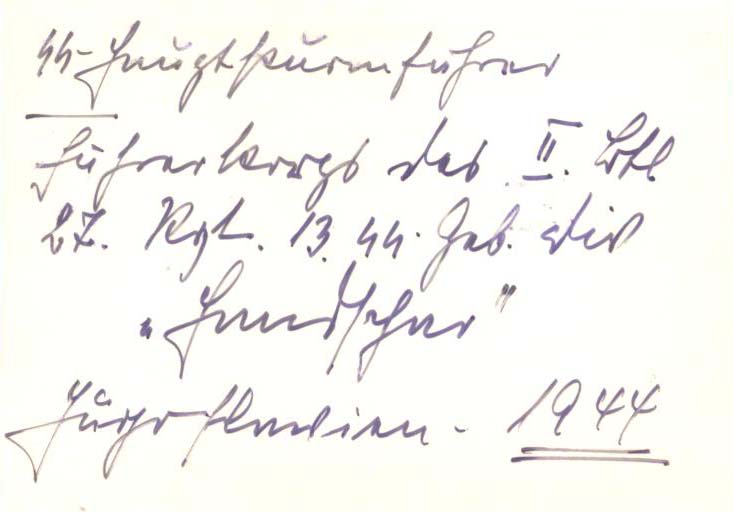 SS-Hauptsturmführer
Führerkorps des II. Btl.
27. Rgt. 13. SS. Geb. Div
„Handschar"
Jugoslawien - 1944